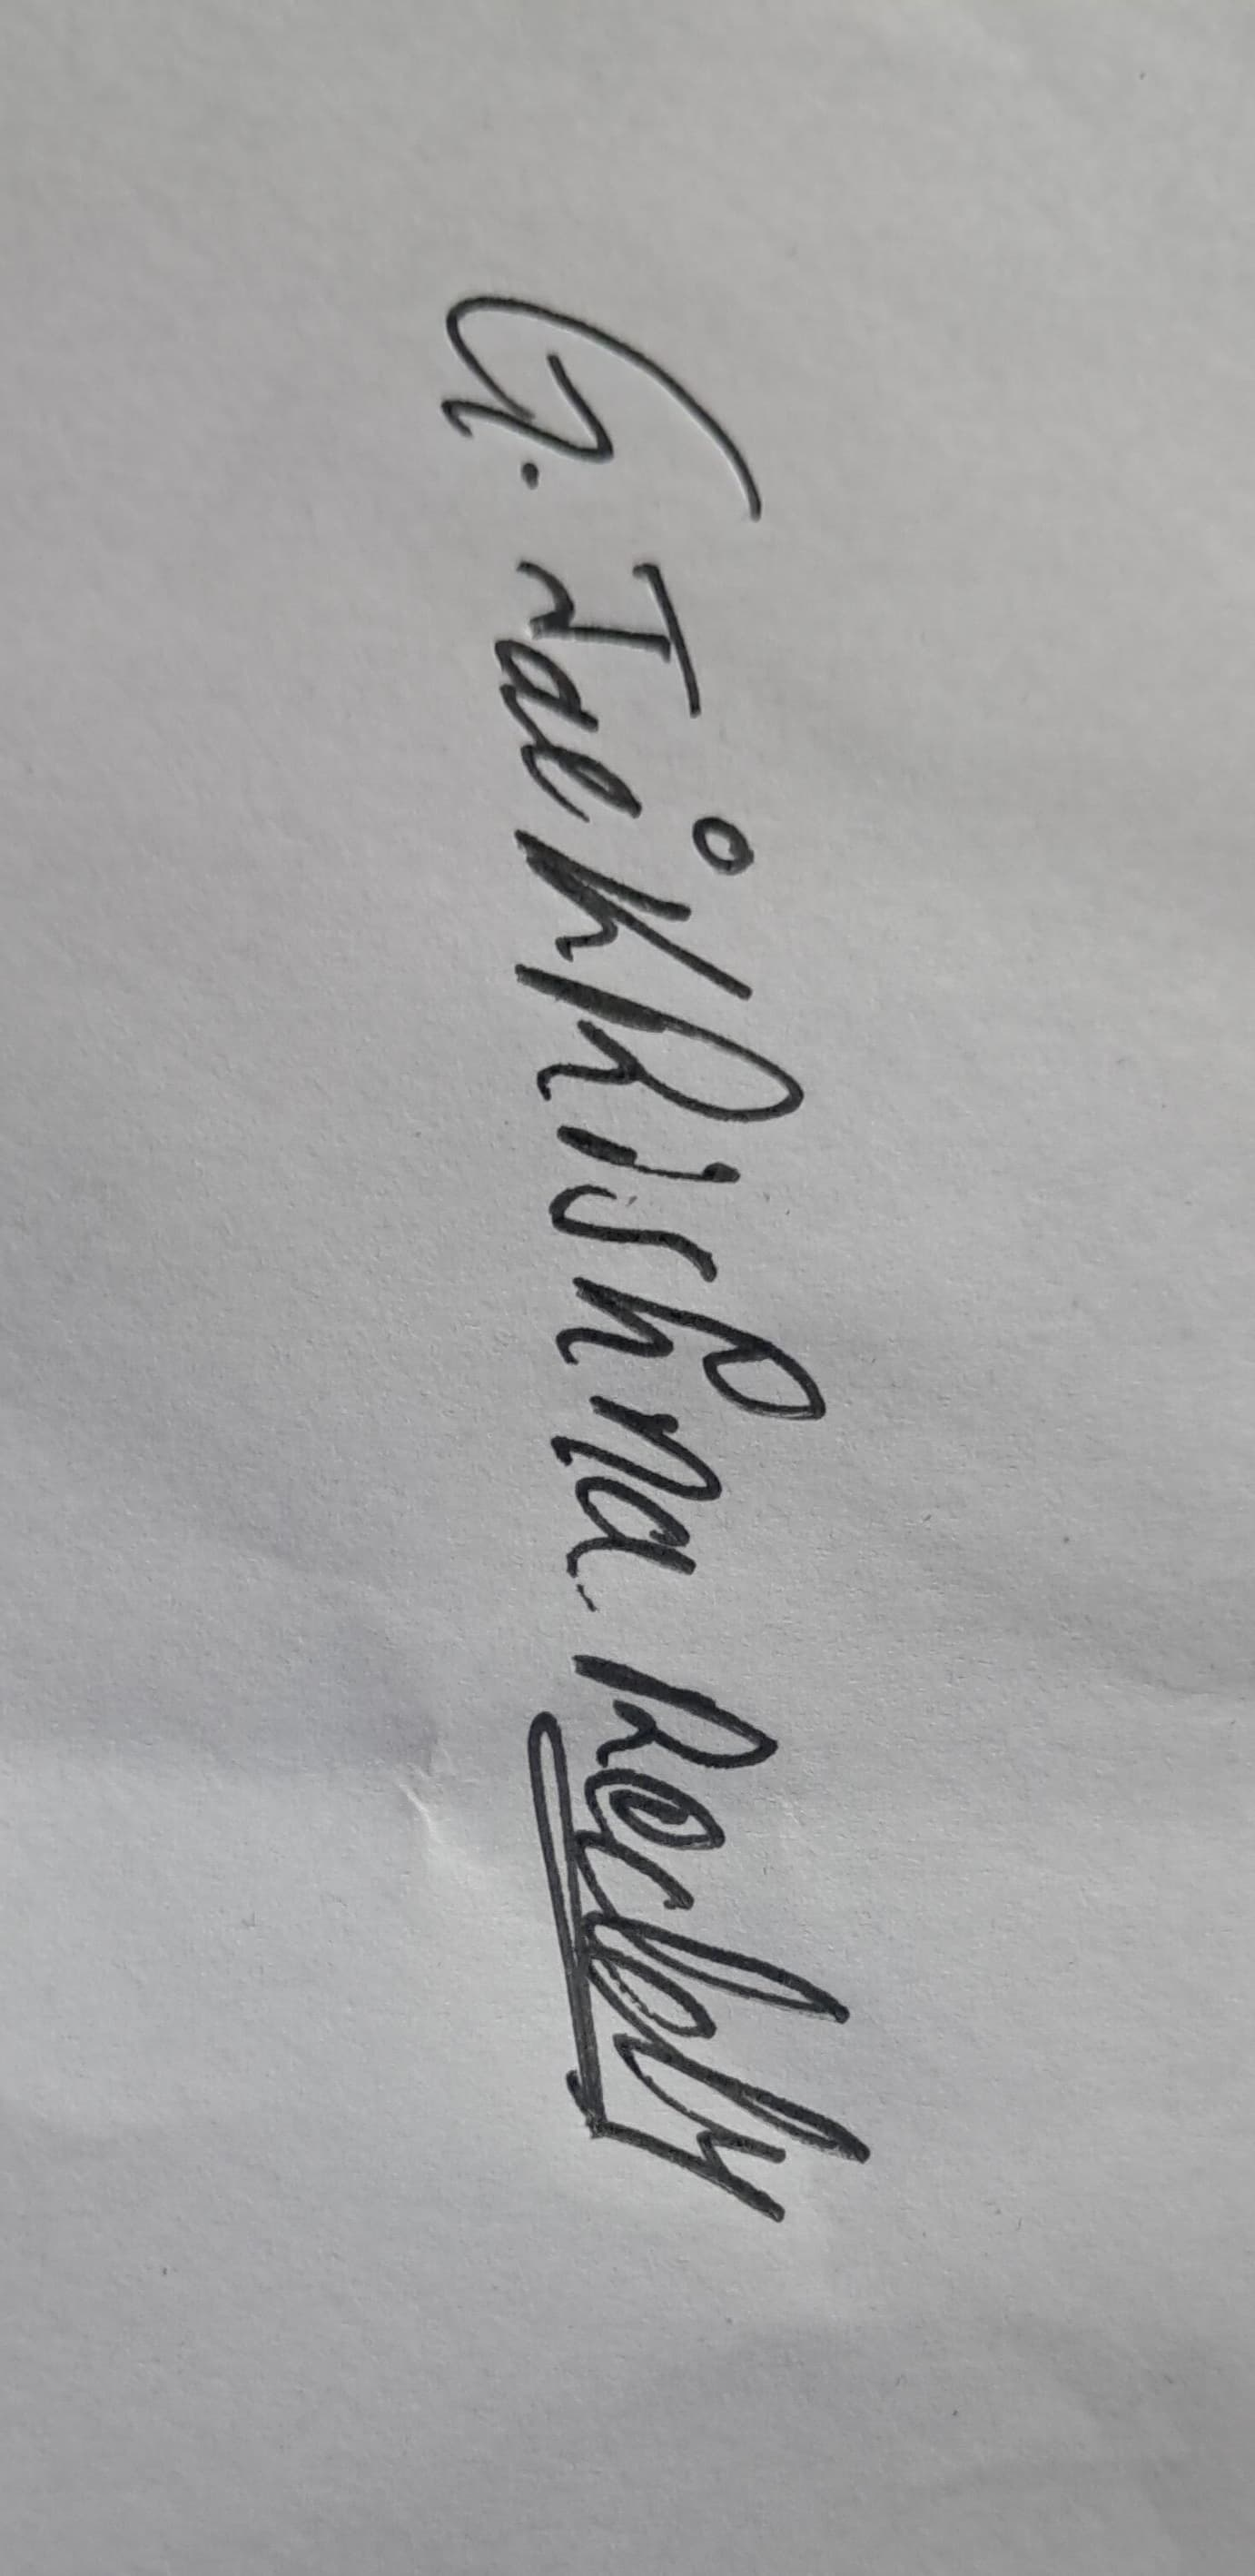 G. JaiKRishna Reddy